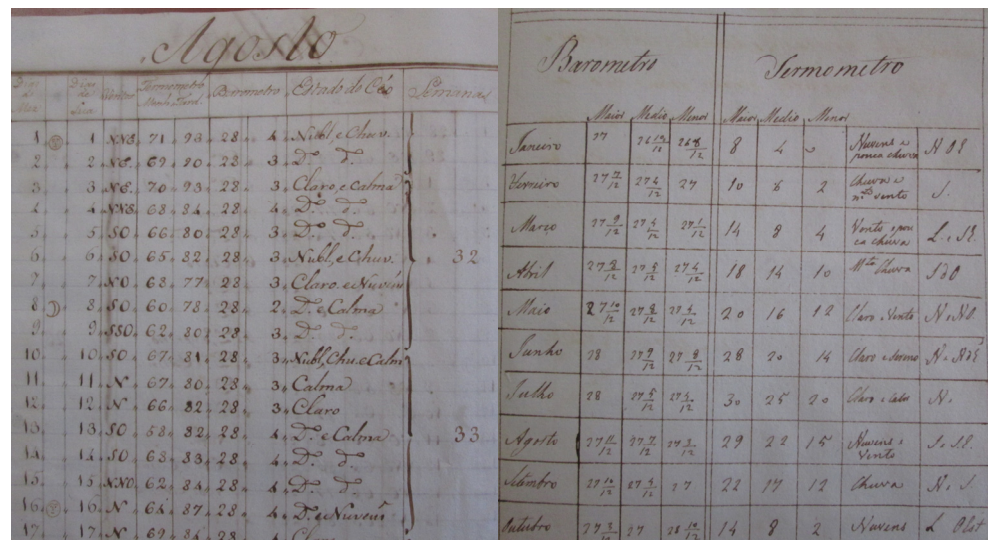 Agosto
Dias do Mez Dias da Lua Ventos Termometro Manh. Tard. Barometro Estado do Céo Semanas
1 1 NNE. 71 93 28 4 Nubl, e Chuv.
2 2 NE. 69 90 28 3 Do. do.
3 3 NE. 70 93 28 3 Claro, e Calma
4 4 NNE. 68 84 28 4 Do. do.
5 5 SO. 66 80 28 3 Do. do.
6 6 SO. 65 82 28 3 Nubl, e Chuv. 32
7 7 NO. 68 77 28 3 Claro, e Nuvens
8 8 SO. 60 78 28 2 D. e Calma
9 9 SSO. 62 80 28 3 Do. do.
10 10 SO. 67 81 28 3 Nubl, Chu. e Calm
11 11 N. 67 80 28 3 Calma
12 12 N. 66 82 28 3 Claro
13 13 SO. 58 82 28 4 D. e Calma 33
14 14 SO. 63 83 28 4 Do. do.
15 15 NNO. 62 84 28 4 Do. do.
16 16 N. 64 87 28 4 Do. e Nuvens
17 17 N. 69 84 28
Barometro Termometro
Maior Medio Menor Maior Medio Menor
Janeiro 27 26 8/12 8 4 Nuvens e pouca chuva
Ferreiro 27 7/12 27 4/12 27 10 8 2 Chuva e mto vento S.
Março 27 9/12 27 1/12 14 8 4 Vento e pouca chuva L. e SE.
Abril 27 9/12 27 4/12 18 14 10 Mta Chuva
Maio 27 10/12 27 8/12 20 16 12 Claro e Vento N. e NO.
Junho 28 27 9/12 27 8/12 28 20 14 Claro e sereno
Julho 28 27 5/12 30 25 20 Claro e Calor N.
Agosto 27 11/12 27 7/12 29 22 15 Nuvens e Vento S. e SE.
Setembro 27 10/12 27 22 17 12 Chuva N. e S.
Outubro 27 2/12 27 26 10/12 14 8 2 Nuvens